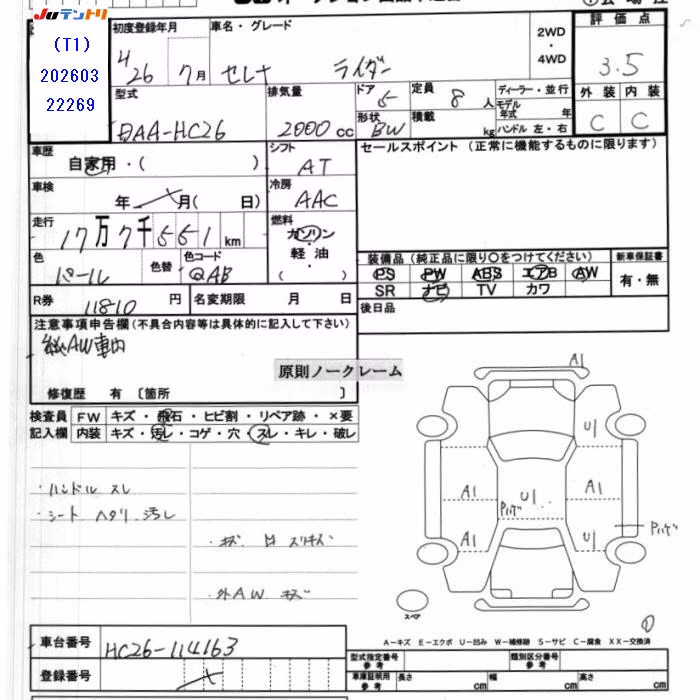 JUテントリ
(T1)
202603
22269
初度登録年月
車名・グレード
2WD
・
4WD
評価点
H
26 7月
セレナ ライダー
3.5
型式
排気量
ドア 5
定員 8人
ディーラー・並行
モデル年式 年
ハンドル 左・右
外装 内装
DAA-HC26
2000cc
形状 BW
積載 kg
C C
車歴
自家用・( )
シフト
AT
セールスポイント (正常に機能するものに限ります)
車検
年 月( 日)
冷房
AAC
走行
17万7千551km
燃料
ガソリン
・
軽油
・
( )
色
パール
色替
色コード
QAB
装備品 (純正品に限り○をつけてください)
新車保証書
PS PW ABS エアB AW
SR ナビ TV カワ
有・無
R券 11810円
名変期限 月 日
後日品
注意事項申告欄(不具合内容等は具体的に記入して下さい)
AW車内
原則ノークレーム
修復歴 有 〔箇所 〕
検査員 FW キズ・飛石・ヒビ割・リペア跡・×要
記入欄 内装 キズ・汚レ・コゲ・穴・スレ・キレ・破レ
・ハンドル スレ
・シート ヘタリ 汚し
・キズ 凹 スリキズ
・外AW キズ
A1
U1
A1 A1
U1
Pハゲ
A1 U1
Pハゲ
スペア
①
A-キズ E-エクボ U-凹み W-補修跡 S-サビ C-腐食 XX-交換済
車台番号 HC26-114163
登録番号
型式指定番号 参考
類別区分番号 参考
車庫証明用 参考
長さ cm 幅 cm 高さ cm